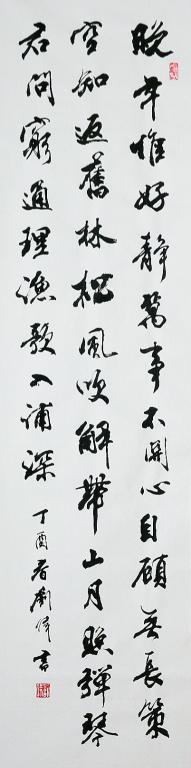 晚年惟好静萬事不関心自顧無長策
空知返舊林松風吹解帶山月照彈琴
君問窮通理漁歌入浦深
丁酉春劉偉書